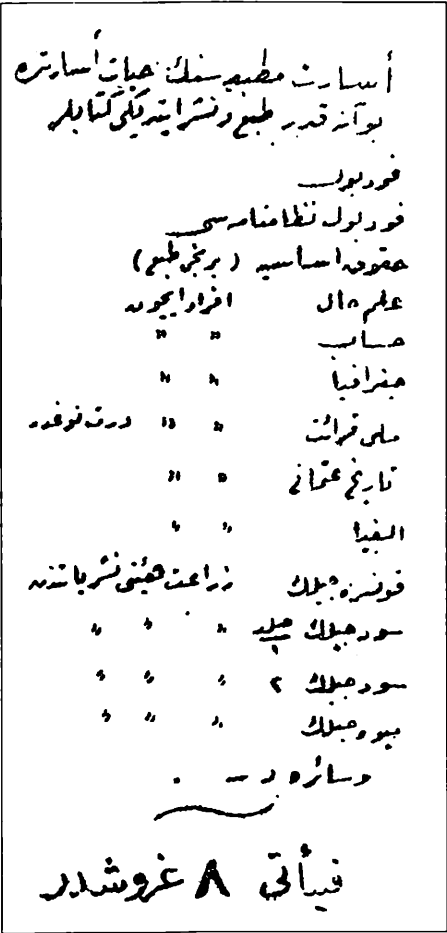 أسارت مطبعه سنك حيات أسارتده
بو آنه قدر طبع و نشر ايتديكى كتابلر
فودبول
فودبول نظامنامه سى
حقوق اساسيه (برنجى طبع)
علم حال افراد ايچون
حساب " "
جغرافيا " "
ملى قرائت " " درت نوعدر
تاريخ عثمانى " "
الفبا " "
قونسروه جيلك زراعت هيئتى نشرياتندن
سودجيلك جلد ١ " " "
سودجيلك ٢ " " "
ميوه جيلك " " "
وسائره
فيأتى ٨ غروشدر